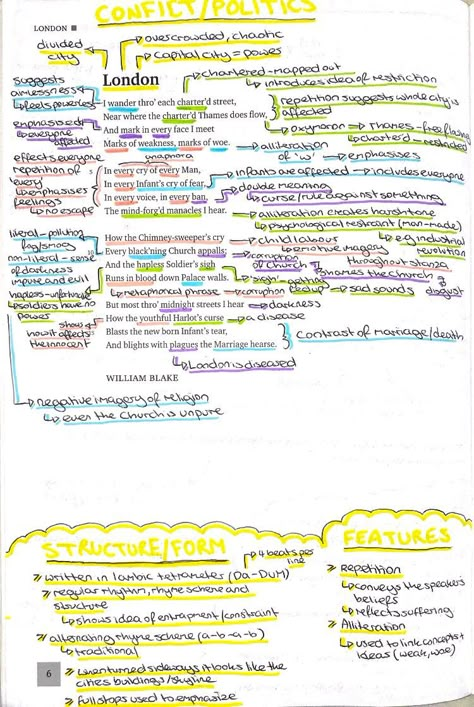 CONFLICT/POLITICS
LONDON
divided city
overcrowded, chaotic
capital city = power
London
suggests aimlessness
feels powerless
chartered - mapped out
introduces idea of restriction
I wander thro' each charter'd street,
Near where the charter'd Thames does flow,
And mark in every face I meet
Marks of weakness, marks of woe.
repetition suggests whole city is affected
oxymoron → Thames - free flowing
charter'd - restricted
emphasised
everyone affected
alliteration of 'w'
emphasises
anaphora
effects everyone
repetition of every
emphasises feelings
no escape
In every cry of every Man,
In every Infant's cry of fear,
In every voice, in every ban,
The mind-forg'd manacles I hear.
infants are affected → includes everyone
double meaning
curse/rule against something
alliteration creates harsh tone
psychological restraint (man-made)
literal - pollution fog/smog
non-literal - sense of darkness
impure and evil
hapless - unfortunate
soldiers have no power
How the Chimney-sweeper's cry
Every black'ning Church appalls;
And the hapless Soldier's sigh
Runs in blood down Palace walls.
child labour
emotive imagery
e.g industrial revolution
throughout stanza
corruption of church
shames the church
disgust
'sigh' - getting fed up
sad sounds
metaphorical phrase → corruption
But most thro' midnight streets I hear
How the youthful Harlot's curse
Blasts the new born Infant's tear,
And blights with plagues the Marriage hearse.
darkness
a disease
shows how it affects the innocent
contrast of marriage/death
London is diseased
WILLIAM BLAKE
negative imagery of religion
even the Church is unpure
STRUCTURE/FORM
4 beats per line
written in Iambic tetrameter (Da-DUM)
regular rhythm, rhyme scheme and structure
shows idea of entrapment/constraint
alternating rhyme scheme (a-b-a-b)
traditional
when turned sideways it looks like the cities buildings/skyline
full stops used to emphasize
FEATURES
Repetition
conveys the speakers beliefs
reflects suffering
Alliteration
used to link concepts + ideas (weak, woe)
6